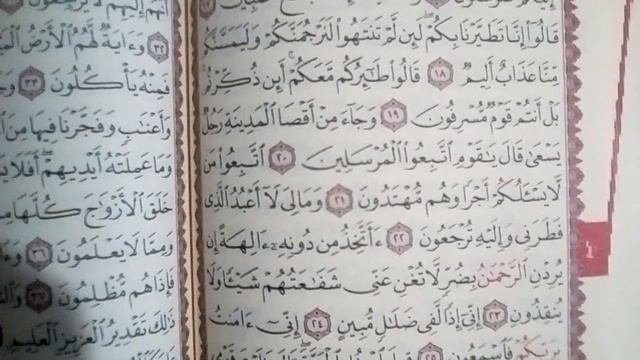 قَالُوٓا۟ إِنَّا تَطَيَّرْنَا بِكُمْ لَئِن لَّمْ تَنتَهُوا۟ لَنَرْجُمَنَّكُمْ وَلَيَمَسَّنَّكُم
مِّنَّا عَذَابٌ أَلِيمٌ ١٨ قَالُوا۟ طَـٰٓئِرُكُم مَّعَكُمْ أَئِن ذُكِّرْتُم
بَلْ أَنتُمْ قَوْمٌ مُّسْرِفُونَ ١٩ وَجَآءَ مِنْ أَقْصَا ٱلْمَدِينَةِ رَجُلٌ
يَسْعَىٰ قَالَ يَـٰقَوْمِ ٱتَّبِعُوا۟ ٱلْمُرْسَلِينَ ٢٠ ٱتَّبِعُوا۟ مَن
لَّا يَسْـَٔلُكُمْ أَجْرًا وَهُم مُّهْتَدُونَ ٢١ وَمَا لِىَ لَآ أَعْبُدُ ٱلَّذِى
فَطَرَنِى وَإِلَيْهِ تُرْجَعُونَ ٢٢ ءَأَتَّخِذُ مِن دُونِهِۦٓ ءَالِهَةً إِن
يُرِدْنِ ٱلرَّحْمَـٰنُ بِضُرٍّ لَّا تُغْنِ عَنِّى شَفَـٰعَتُهُمْ شَيْـًٔا وَلَا
يُنقِذُونِ ٢٣ إِنِّىٓ إِذًا لَّفِى ضَلَـٰلٍ مُّبِينٍ ٢٤ إِنِّىٓ ءَامَنتُ
بِرَبِّكُمْ فَٱسْمَعُونِ ٢٥
أَنَّهُمْ إِلَيْهِمْ لَا يَرْجِعُونَ
٣٢ وَءَايَةٌ لَّهُمُ ٱلْأَرْضُ
فَمِنْهُ يَأْكُلُونَ ٣٣
وَأَعْنَـٰبٍ وَفَجَّرْنَا فِيهَا مِنَ
وَمَا عَمِلَتْهُ أَيْدِيهِمْ أَفَلَا
خَلَقَ ٱلْأَزْوَٰجَ كُلَّهَا
وَمِمَّا لَا يَعْلَمُونَ ٣٦
فَإِذَا هُم مُّظْلِمُونَ ٣٧
ذَٰلِكَ تَقْدِيرُ ٱلْعَزِيزِ ٱلْعَلِيمِ